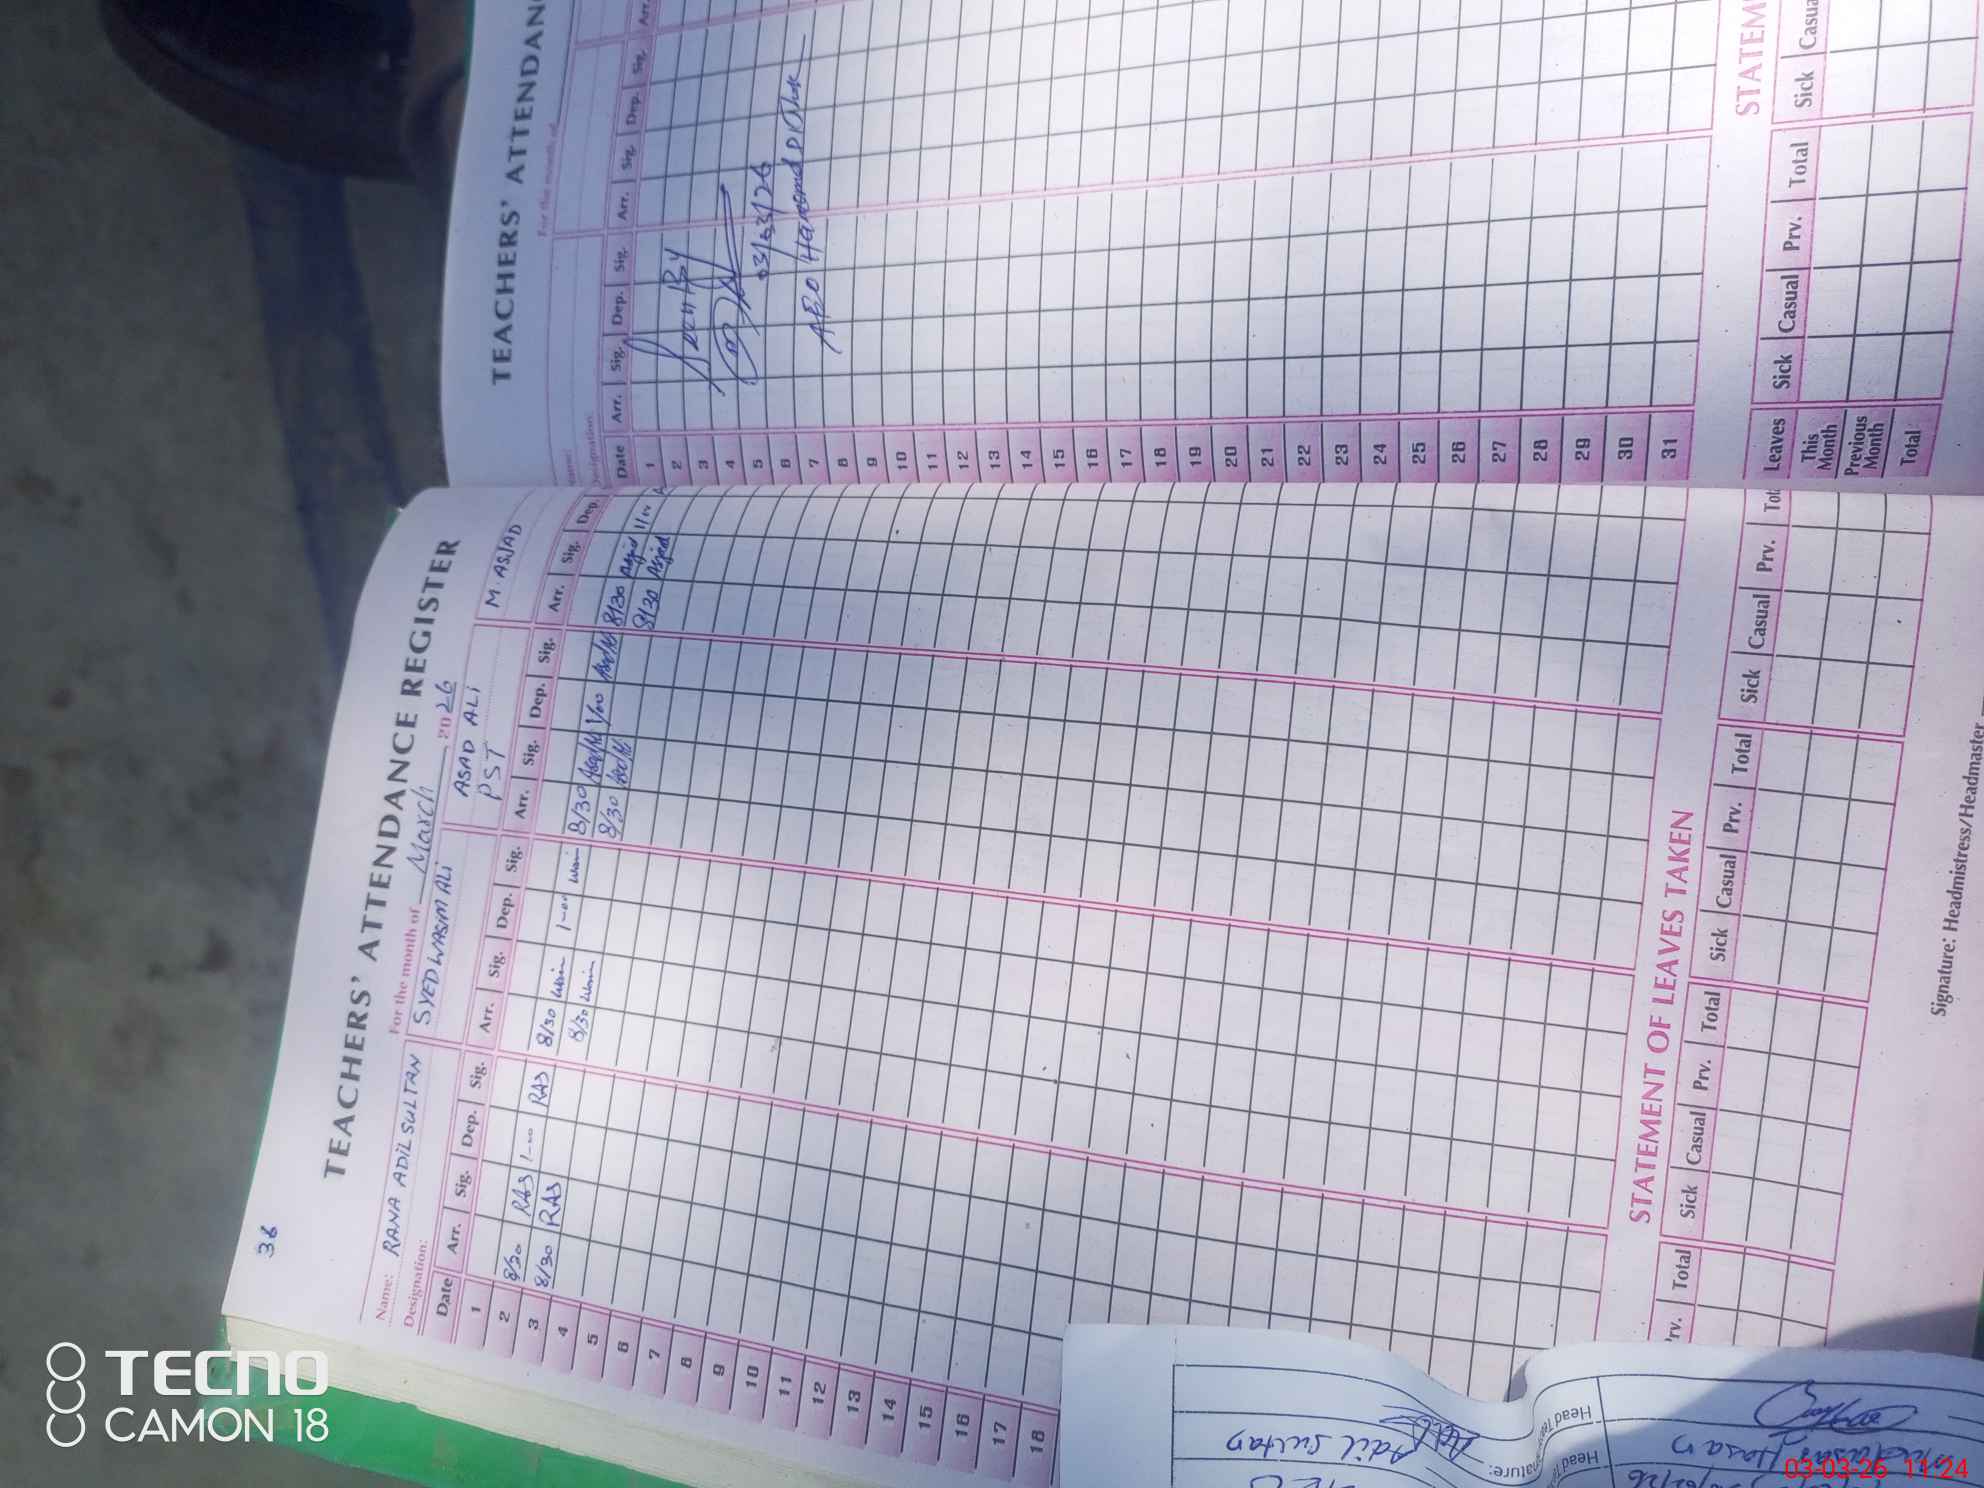 36
TEACHERS' ATTENDANCE REGISTER
For the month of March 2026
Name: RANA ADIL SULTAN SYED WASIM ALI ASAD ALI M. ASJAD
Designation: PST
Date Arr. Sig. Dep. Sig. Arr. Sig. Dep. Sig. Arr. Sig. Dep. Sig. Arr. Sig. Dep.
1
2 8/30 RAS 1-00 RAS 8/30 Wasim 1-00 Wasim 8/30 1/00 8/30 Asjad 1/00
3 8/30 RAS 8/30 Wasim 8/30 8/30 Asjad
4
5
6
7
8
9
10
11
12
13
14
15
16
17
18
STATEMENT OF LEAVES TAKEN
Prv. Total Sick Casual Prv. Total Sick Casual Prv. Total Sick Casual Prv.
Signature: Headmistress/Headmaster
TEACHERS' ATTENDANC
For the month of
Name:
Designation
Date Arr. Sig. Dep. Sig. Arr. Sig. Dep. Sig. Arr.
1
2
3
4
5 03/03/26
6
7
8
9
10
11
12
13
14
15
16
17
18
19
20
21
22
23
24
25
26
27
28
29
30
31
STATEM
Leaves Sick Casual Prv. Total Sick Casua
This Month
Previous Month
Total
Adil Sultan
Head
Head
nature:
Hasan
TECNO
CAMON 18
03-03-26 11:24